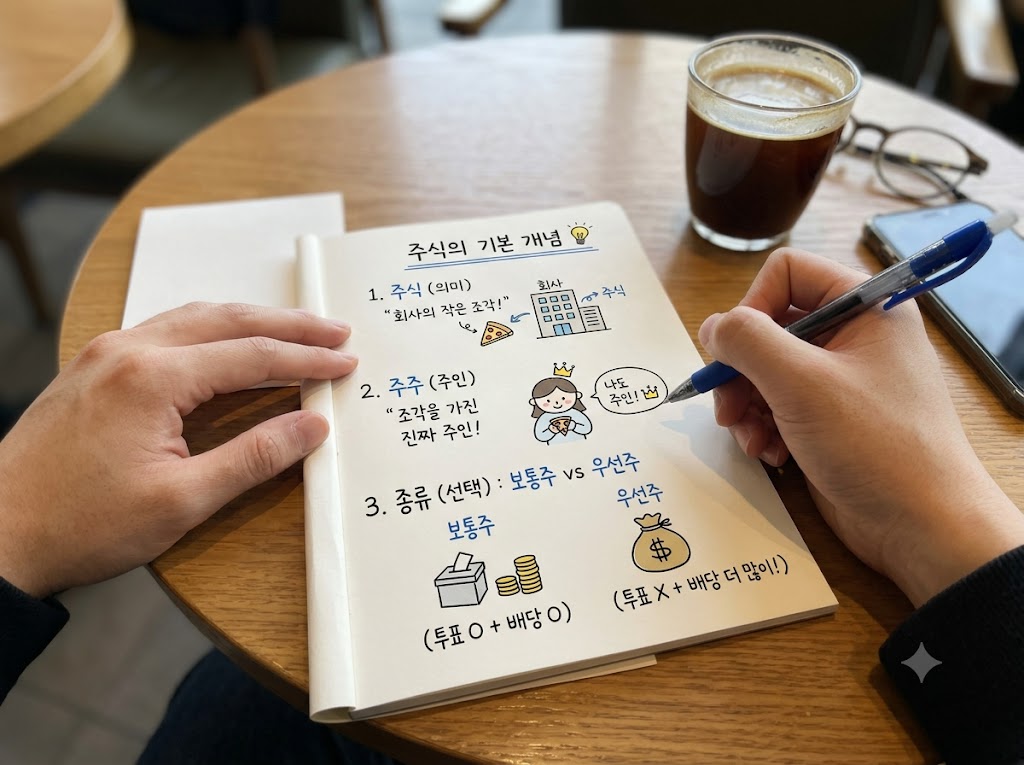 주식의 기본 개념
1. 주식 (의미)
"회사의 작은 조각!"
회사
주식
2. 주주 (주인)
"조각을 가진
진짜 주인!
나도
주인!
3. 종류 (선택) : 보통주 vs 우선주
보통주
우선주
$
(투표 O + 배당 O)
(투표 X + 배당 더 많이!)